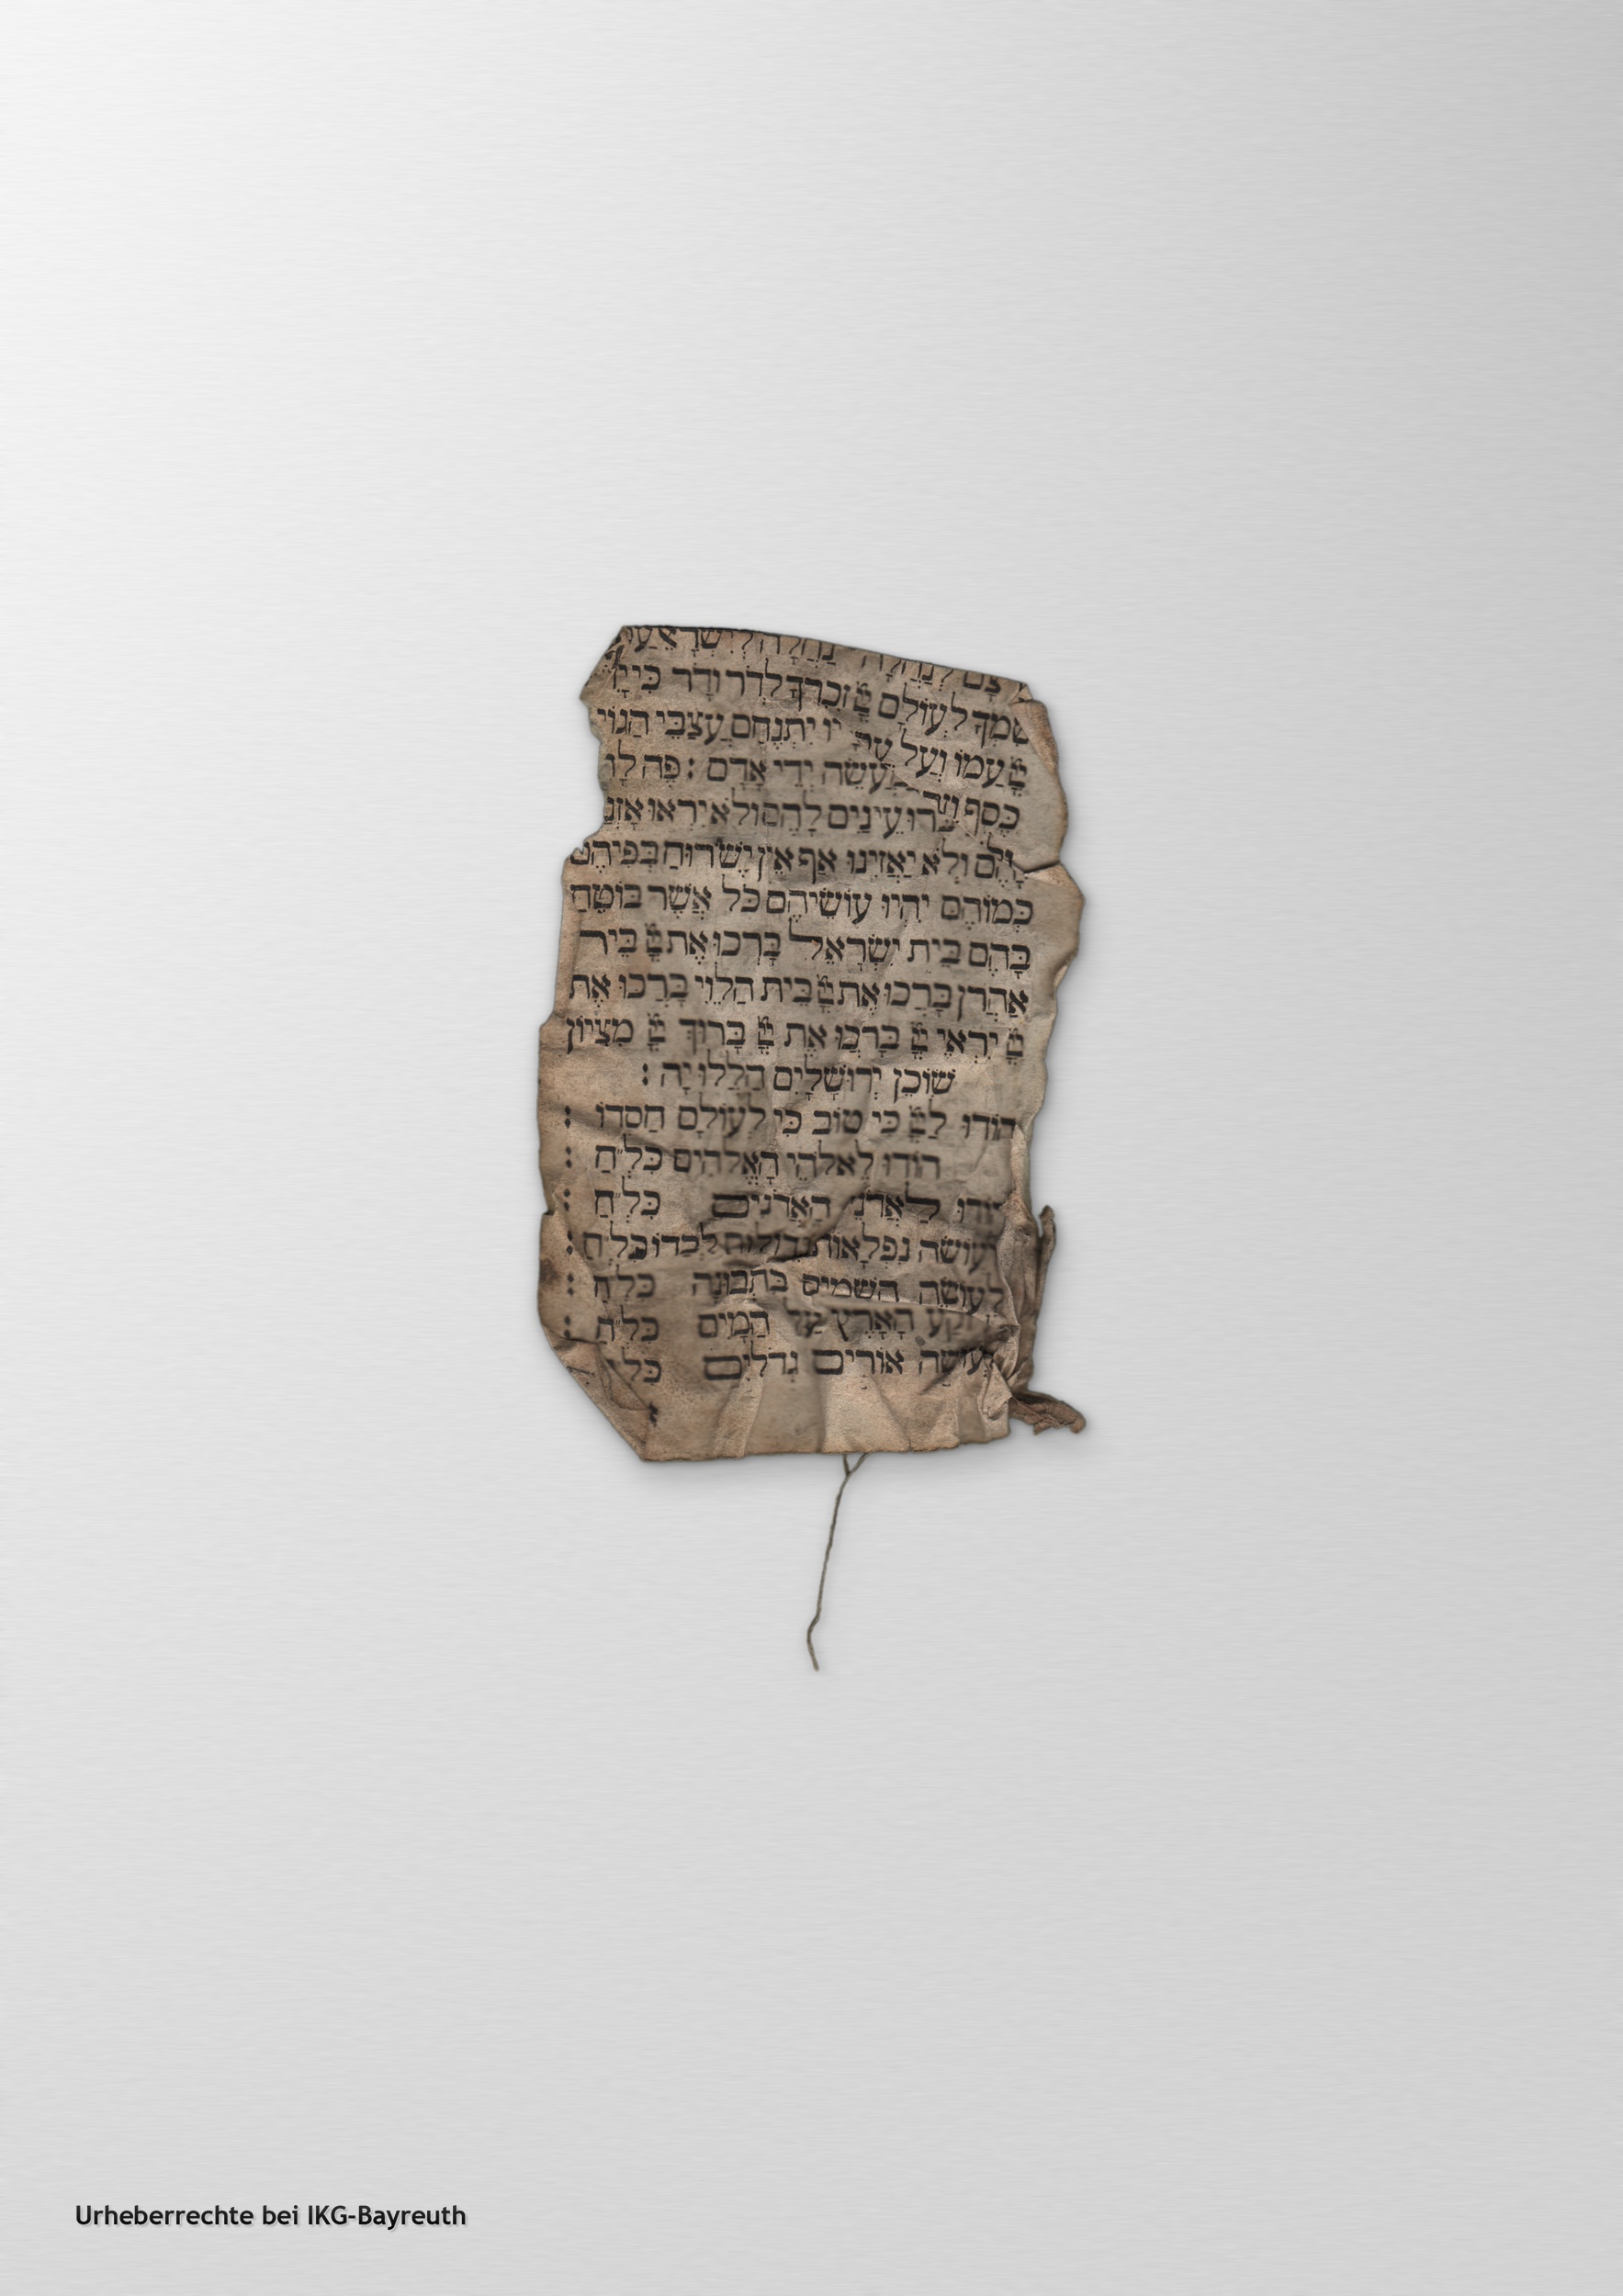 נַחֲלָה לְיִשְׂרָאֵל
שִׁמְךָ לְעוֹלָם יְיָ זִכְרְךָ לְדֹר וָדֹר כִּי יָדִ
יְיָ עַמּוֹ וְעַל עֲבָ יו יִתְנֶחָם עֲצַבֵּי הַגּוֹיִ
כֶּסֶף מַעֲשֵׂה יְדֵי אָדָם : פֶּה לָ
עֵינַיִם לָהֶם וְלֹא יִרְאוּ אָזְנַ
לָהֶם וְלֹא יַאֲזִינוּ אַף אֵין יֶשׁ רוּחַ בְּפִיהֶם
כְּמוֹהֶם יִהְיוּ עוֹשֵׂיהֶם כֹּל אֲשֶׁר בּוֹטֵחַ
בָּהֶם בֵּית יִשְׂרָאֵל בָּרְכוּ אֶת יְיָ בֵּית
אַהֲרֹן בָּרְכוּ אֶת יְיָ בֵּית הַלֵּוִי בָּרְכוּ אֶת
יְיָ יִרְאֵי יְיָ בָּרְכוּ אֶת יְיָ בָּרוּךְ יְיָ מִצִּיּוֹן
שׁוֹכֵן יְרוּשָׁלָיִם הַלְלוּיָהּ :
הוֹדוּ לַיְיָ כִּי טוֹב כִּי לְעוֹלָם חַסְדּוֹ :
הוֹדוּ לֵאלֹהֵי הָאֱלֹהִים כִּלְ״חַ :
הוֹדוּ לַאֲדֹנֵי הָאֲדֹנִים כִּלְ״חַ :
לְעוֹשֵׂה נִפְלָאוֹת גְּדוֹלוֹת לְבַדּוֹ כִּלְ״חַ :
לְעוֹשֵׂה הַשָּׁמַיִם בִּתְבוּנָה כִּלְ״חַ :
לְרוֹקַע הָאָרֶץ עַל הַמָּיִם כִּלְ״חַ :
לְעוֹשֵׂה אוֹרִים גְּדֹלִים כִּלְ״
Urheberrechte bei IKG-Bayreuth